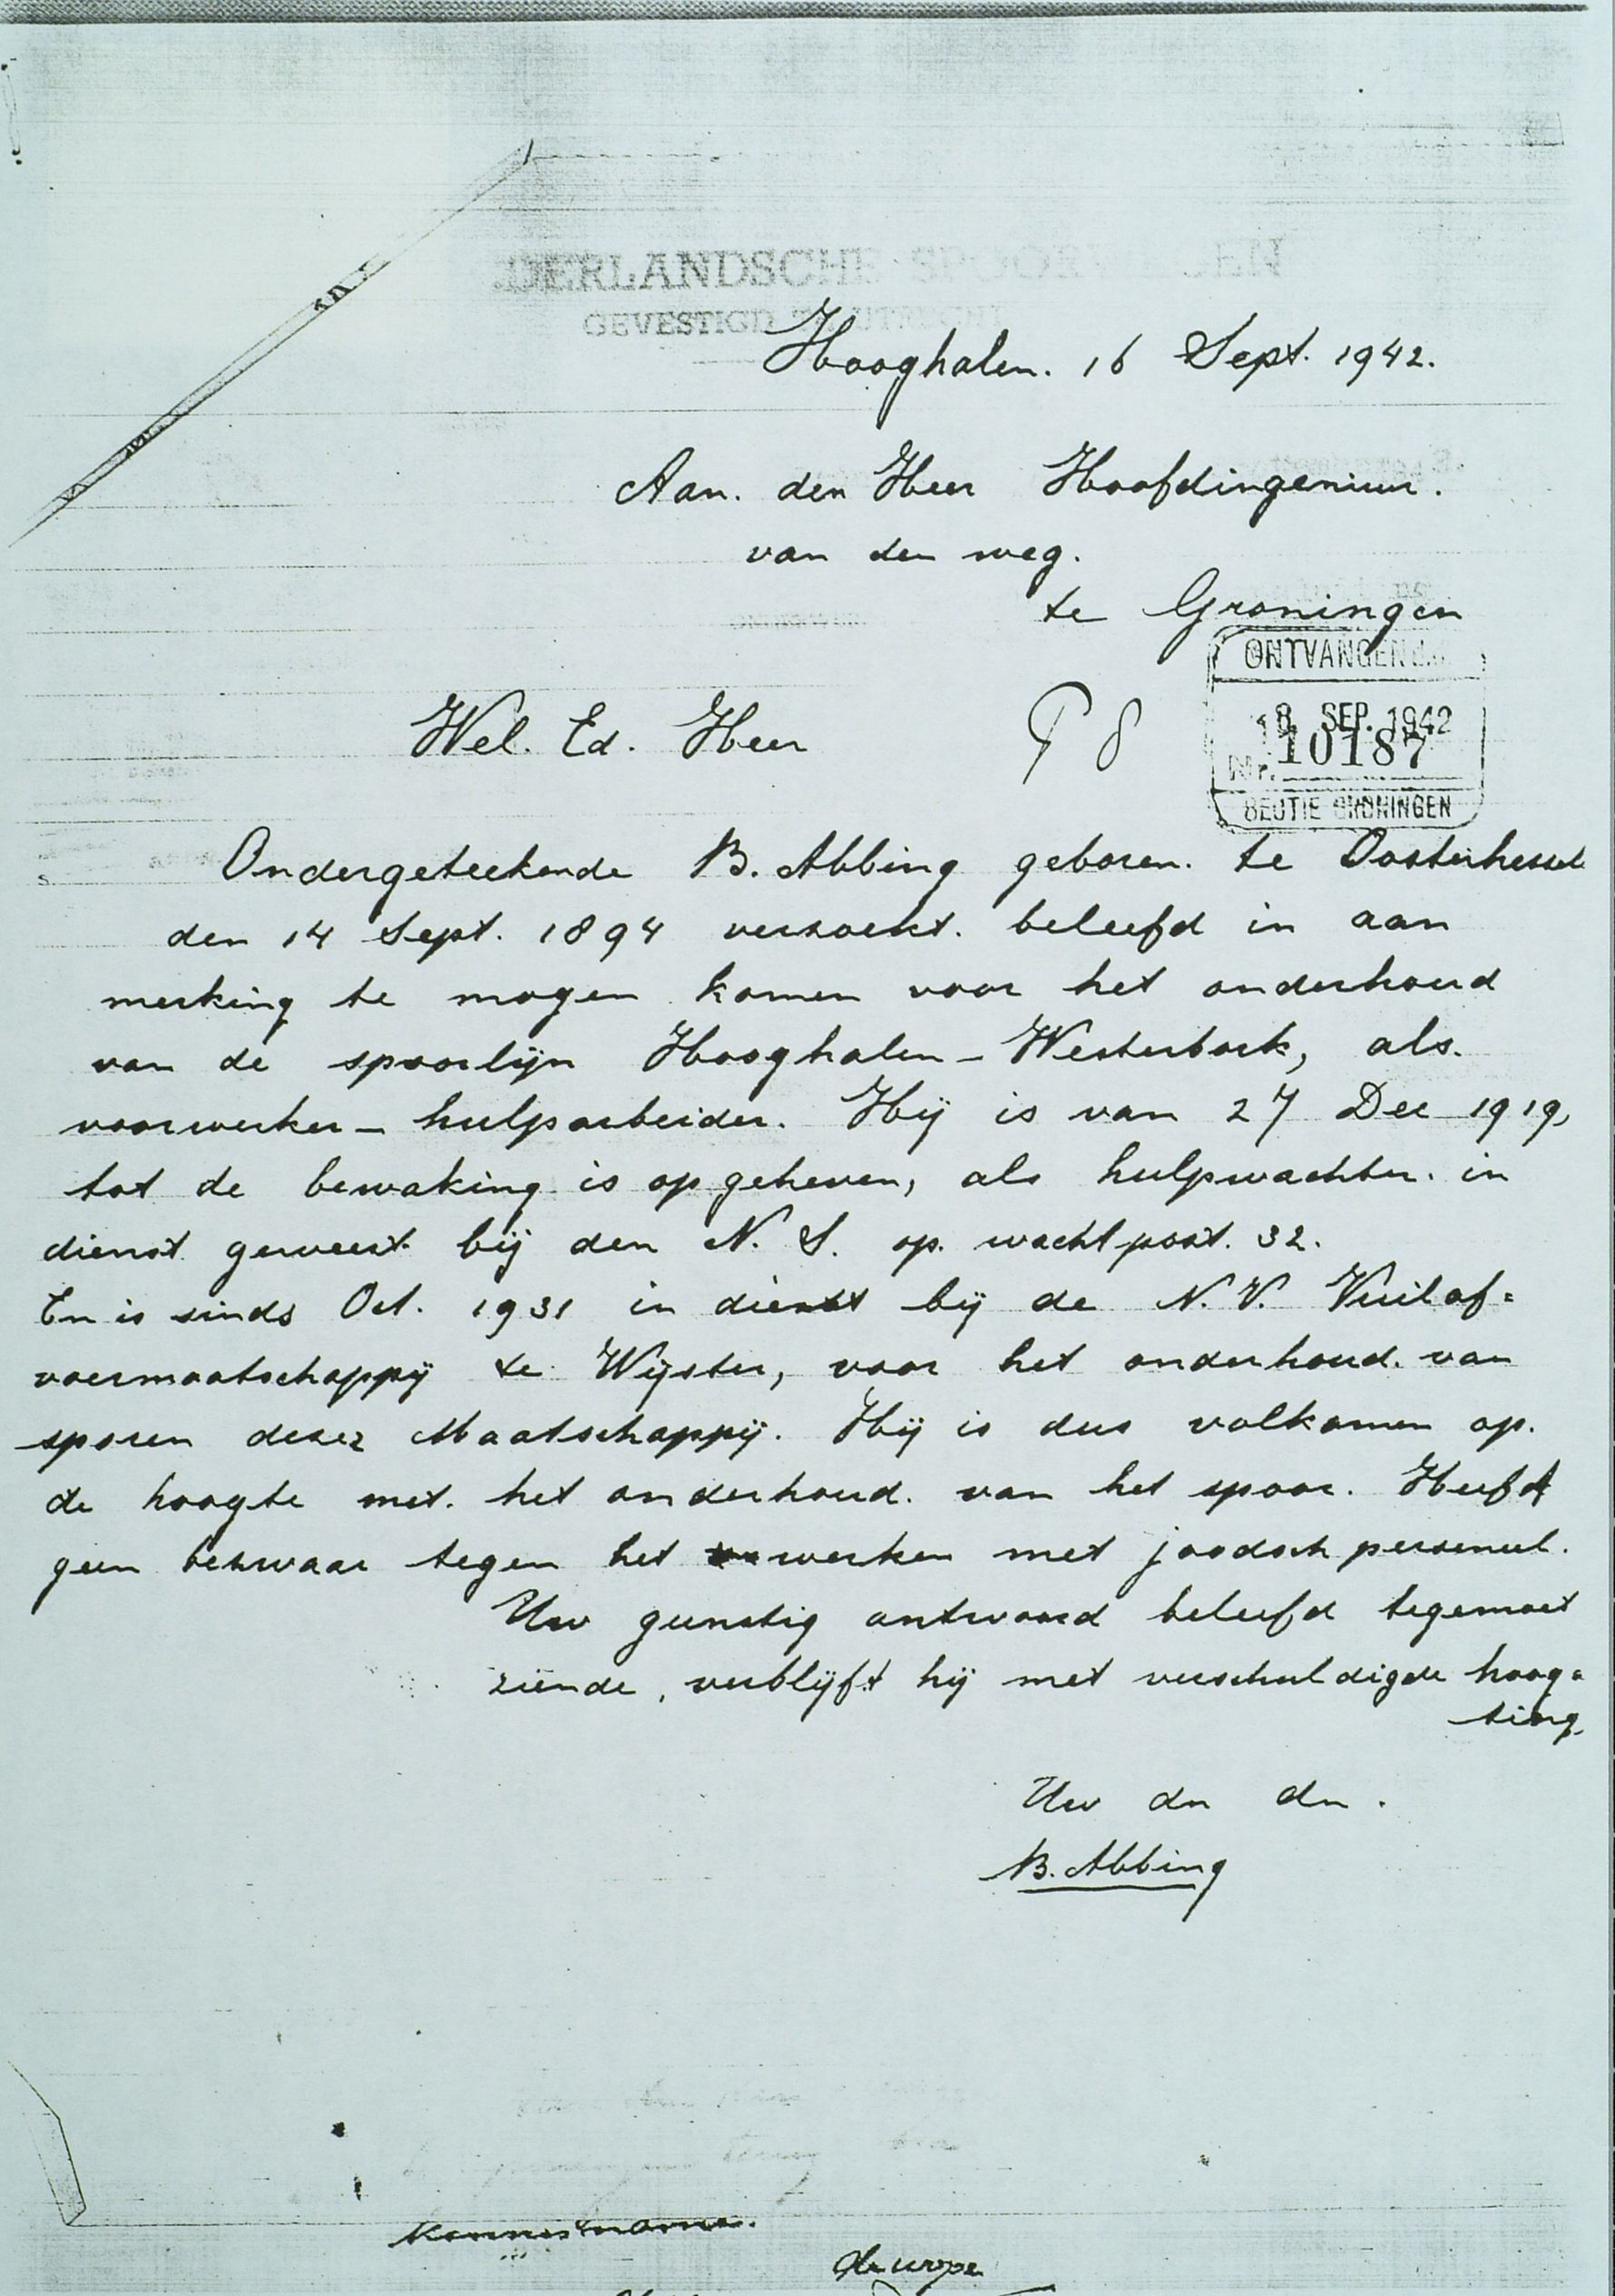 DERLANDSCHE SPOOR EN
GEVESTIGD TE UTRECHT
Hooghalen. 16 Sept. 1942.
Aan. den Heer Hoofdingenieur.
van den weg.
te Groningen
ONTVANGEN
Wel. Ed. Heer
18 SEP. 1942
Nr. 10187
SECTIE GRONINGEN
Ondergeteekende B. Abbing geboren. te Oosterhessel
den 14 Sept. 1894 verzoekt. beleefd in aan
merking te mogen komen voor het onderhoud
van de spoorlijn Hooghalen - Westerbork, als.
voorwerker - hulparbeider. Hij is van 27 Dec 1919,
tot de bewaking is opgeheven, als hulpwachter. in
dienst geweest bij den N. S. op. wachtpost. 32.
En is sinds Oct. 1931 in dienst bij de N. V. Vuilaf=
voermaatschappij te Wijster, voor het onderhoud. van
sporen dezer Maatschappij. Hij is dus volkomen op.
de hoogte met. het onderhoud. van het spoor. Heeft
geen bezwaar tegen het werken met joodsch personeel.
Uw gunstig antwoord beleefd tegemoet
ziende, verblijft hij met verschuldigde hoog=
ting.
Uw dn dn.
B. Abbing
Kennisname.